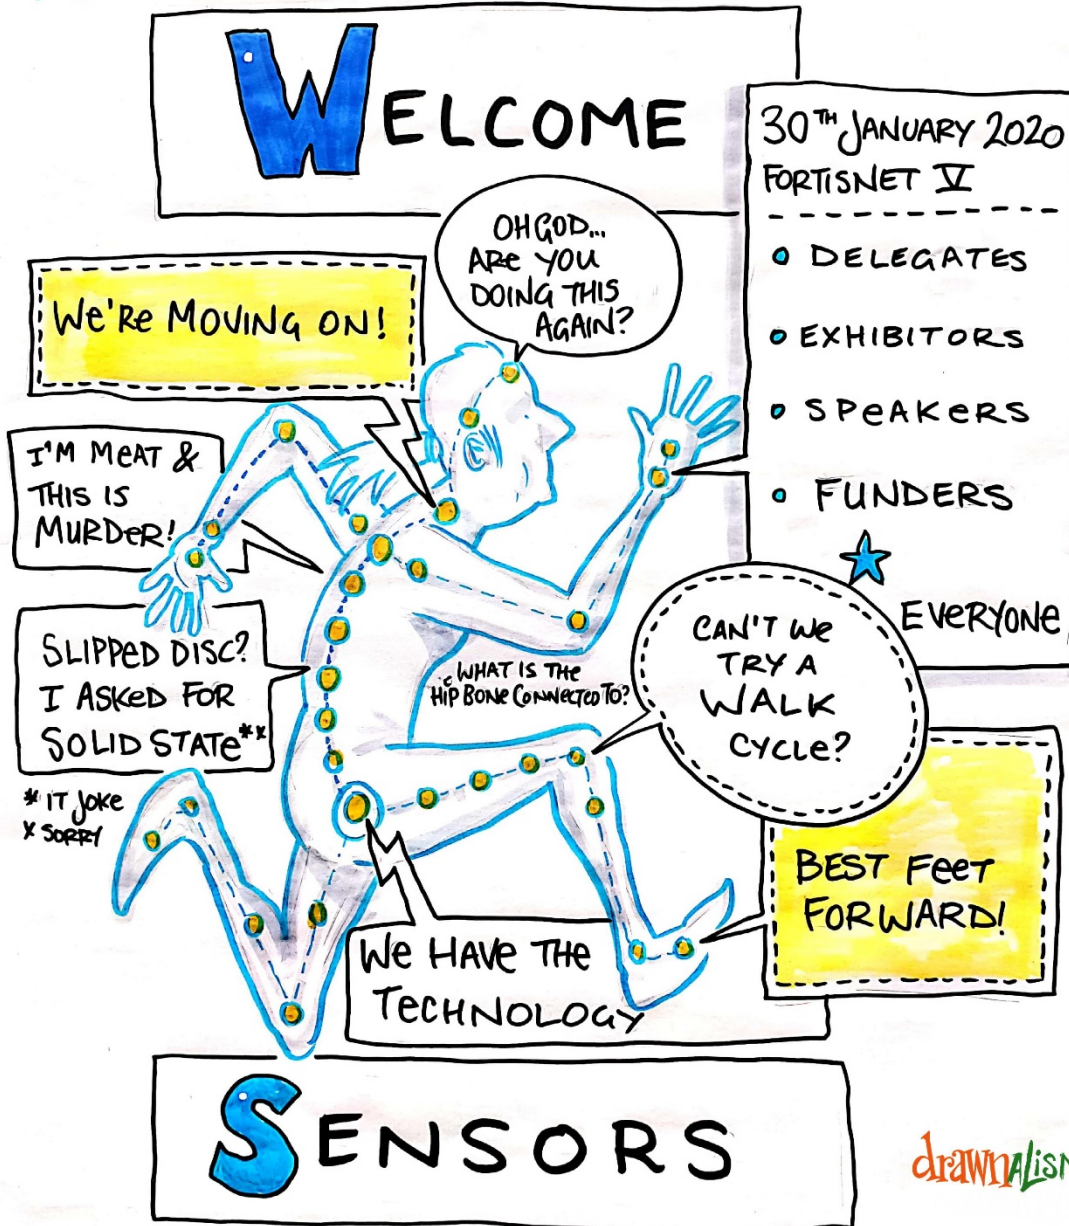 WELCOME
30TH JANUARY 2020
FORTISNET V
• DELEGATES
• EXHIBITORS
• SPEAKERS
• FUNDERS
EVERYONE
OH GOD...
ARE YOU
DOING THIS
AGAIN?
WE'RE MOVING ON!
I'M MEAT &
THIS IS
MURDER!
SLIPPED DISC?
I ASKED FOR
SOLID STATE**
* IT JOKE
* SORRY
WHAT IS THE
HIP BONE CONNECTED TO?
CAN'T WE
TRY A
WALK
CYCLE?
BEST FEET
FORWARD!
WE HAVE THE
TECHNOLOGY
SENSORS